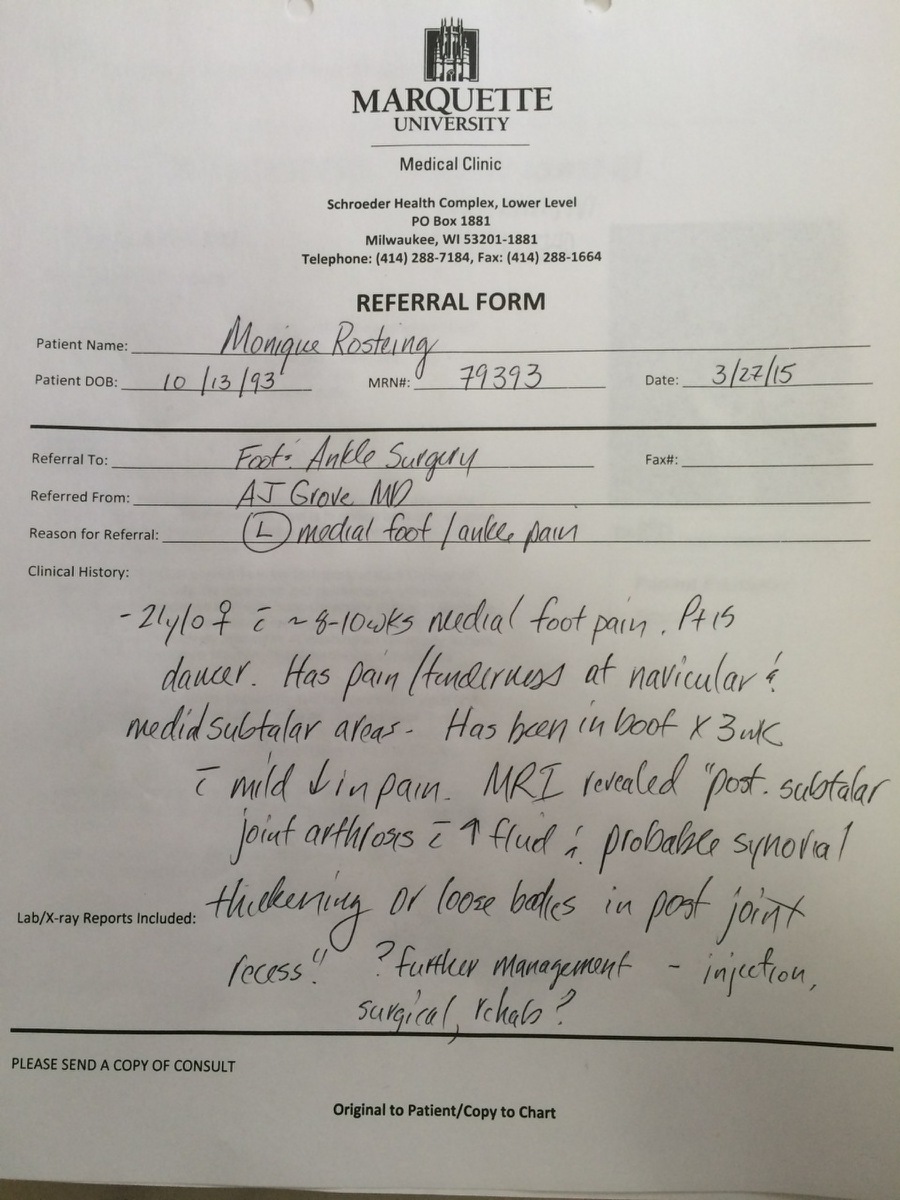 MARQUETTE
UNIVERSITY
Medical Clinic
Schroeder Health Complex, Lower Level
PO Box 1881
Milwaukee, WI 53201-1881
Telephone: (414) 288-7184, Fax: (414) 288-1664
REFERRAL FORM
Patient Name: Monique Rosteing
Patient DOB: 10/13/93 MRN#: 79393 Date: 3/27/15
Referral To: Foot & Ankle Surgery Fax#:
Referred From: AJ Grove MD
Reason for Referral: Ⓛ medial foot/ankle pain
Clinical History:
- 21y/o ♀ c̄ ~8-10wks medial foot pain. Pt is
dancer. Has pain/tenderness at navicular &
medial subtalar areas. Has been in boot x 3wk
c̄ mild ↓ in pain. MRI revealed "post. subtalar
joint arthrosis c̄ ↑ fluid & probable synovial
thickening or loose bodies in post joint
Lab/X-ray Reports Included:
recess" ? further management - injection,
surgical, rehab?
PLEASE SEND A COPY OF CONSULT
Original to Patient/Copy to Chart